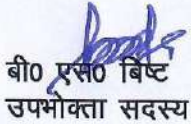 बी0 एस0 बिष्ट
उपभोक्ता सदस्य